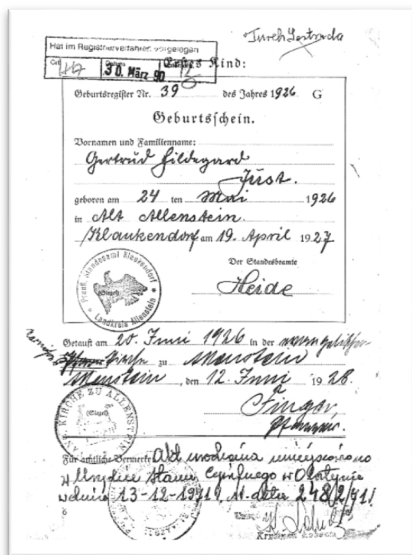 Turek Gertruda
Hat im Registrierverfahren vorgelegen
Ort Datum
30. März 90
Erstes Kind:
Geburtsregister Nr. 39 des Jahres 1926 G
Geburtsschein.
Vornamen und Familienname:
Gertrud Hildegard
Just.
geboren am 24 ten Mai 1926
in Alt Allenstein.
Klaukendorf am 19. April 1927
Der Standesbeamte
Heide
Preuß. Standesamt Klaukendorf
Landkreis Allenstein
(Siegel)
Getauft am 20. Juni 1926 in der evangelischen
Kirche zu Allenstein
Allenstein, den 12. Juni 1928.
KIRCHE ZU ALLENSTEIN
(Siegel)
Pfarrer.
Für amtliche Vermerke: Akt urodzenia umiejscowiono
w Urzędzie Stanu Cywilnego w Olsztynie
w dniu 13-12-1971